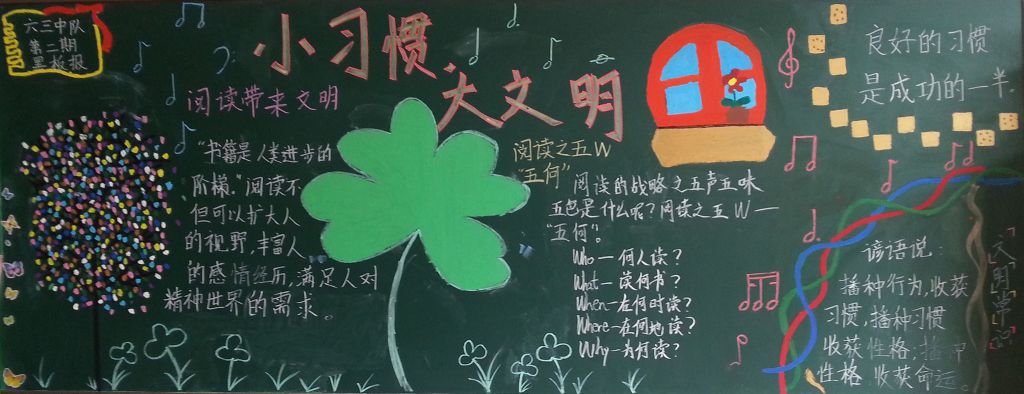 六三中队
第二期
黑板报
小习惯
大文明
阅读带来文明
“书籍是人类进步的
阶梯.”阅读不
但可以扩大人
的视野,丰富人
的感情经历,满足人对
精神世界的需求。
阅读之五W
“五何”
阅读的战略之五声五味
五色是什么呢?阅读之五W—
“五何”。
Who—何人读?
What—读何书?
When—在何时读?
Where—在何地读?
Why—为何读?
良好的习惯
是成功的一半.
谚语说:
播种行为,收获
习惯,播种习惯
收获性格,播种
性格 收获命运。
「文明常识」